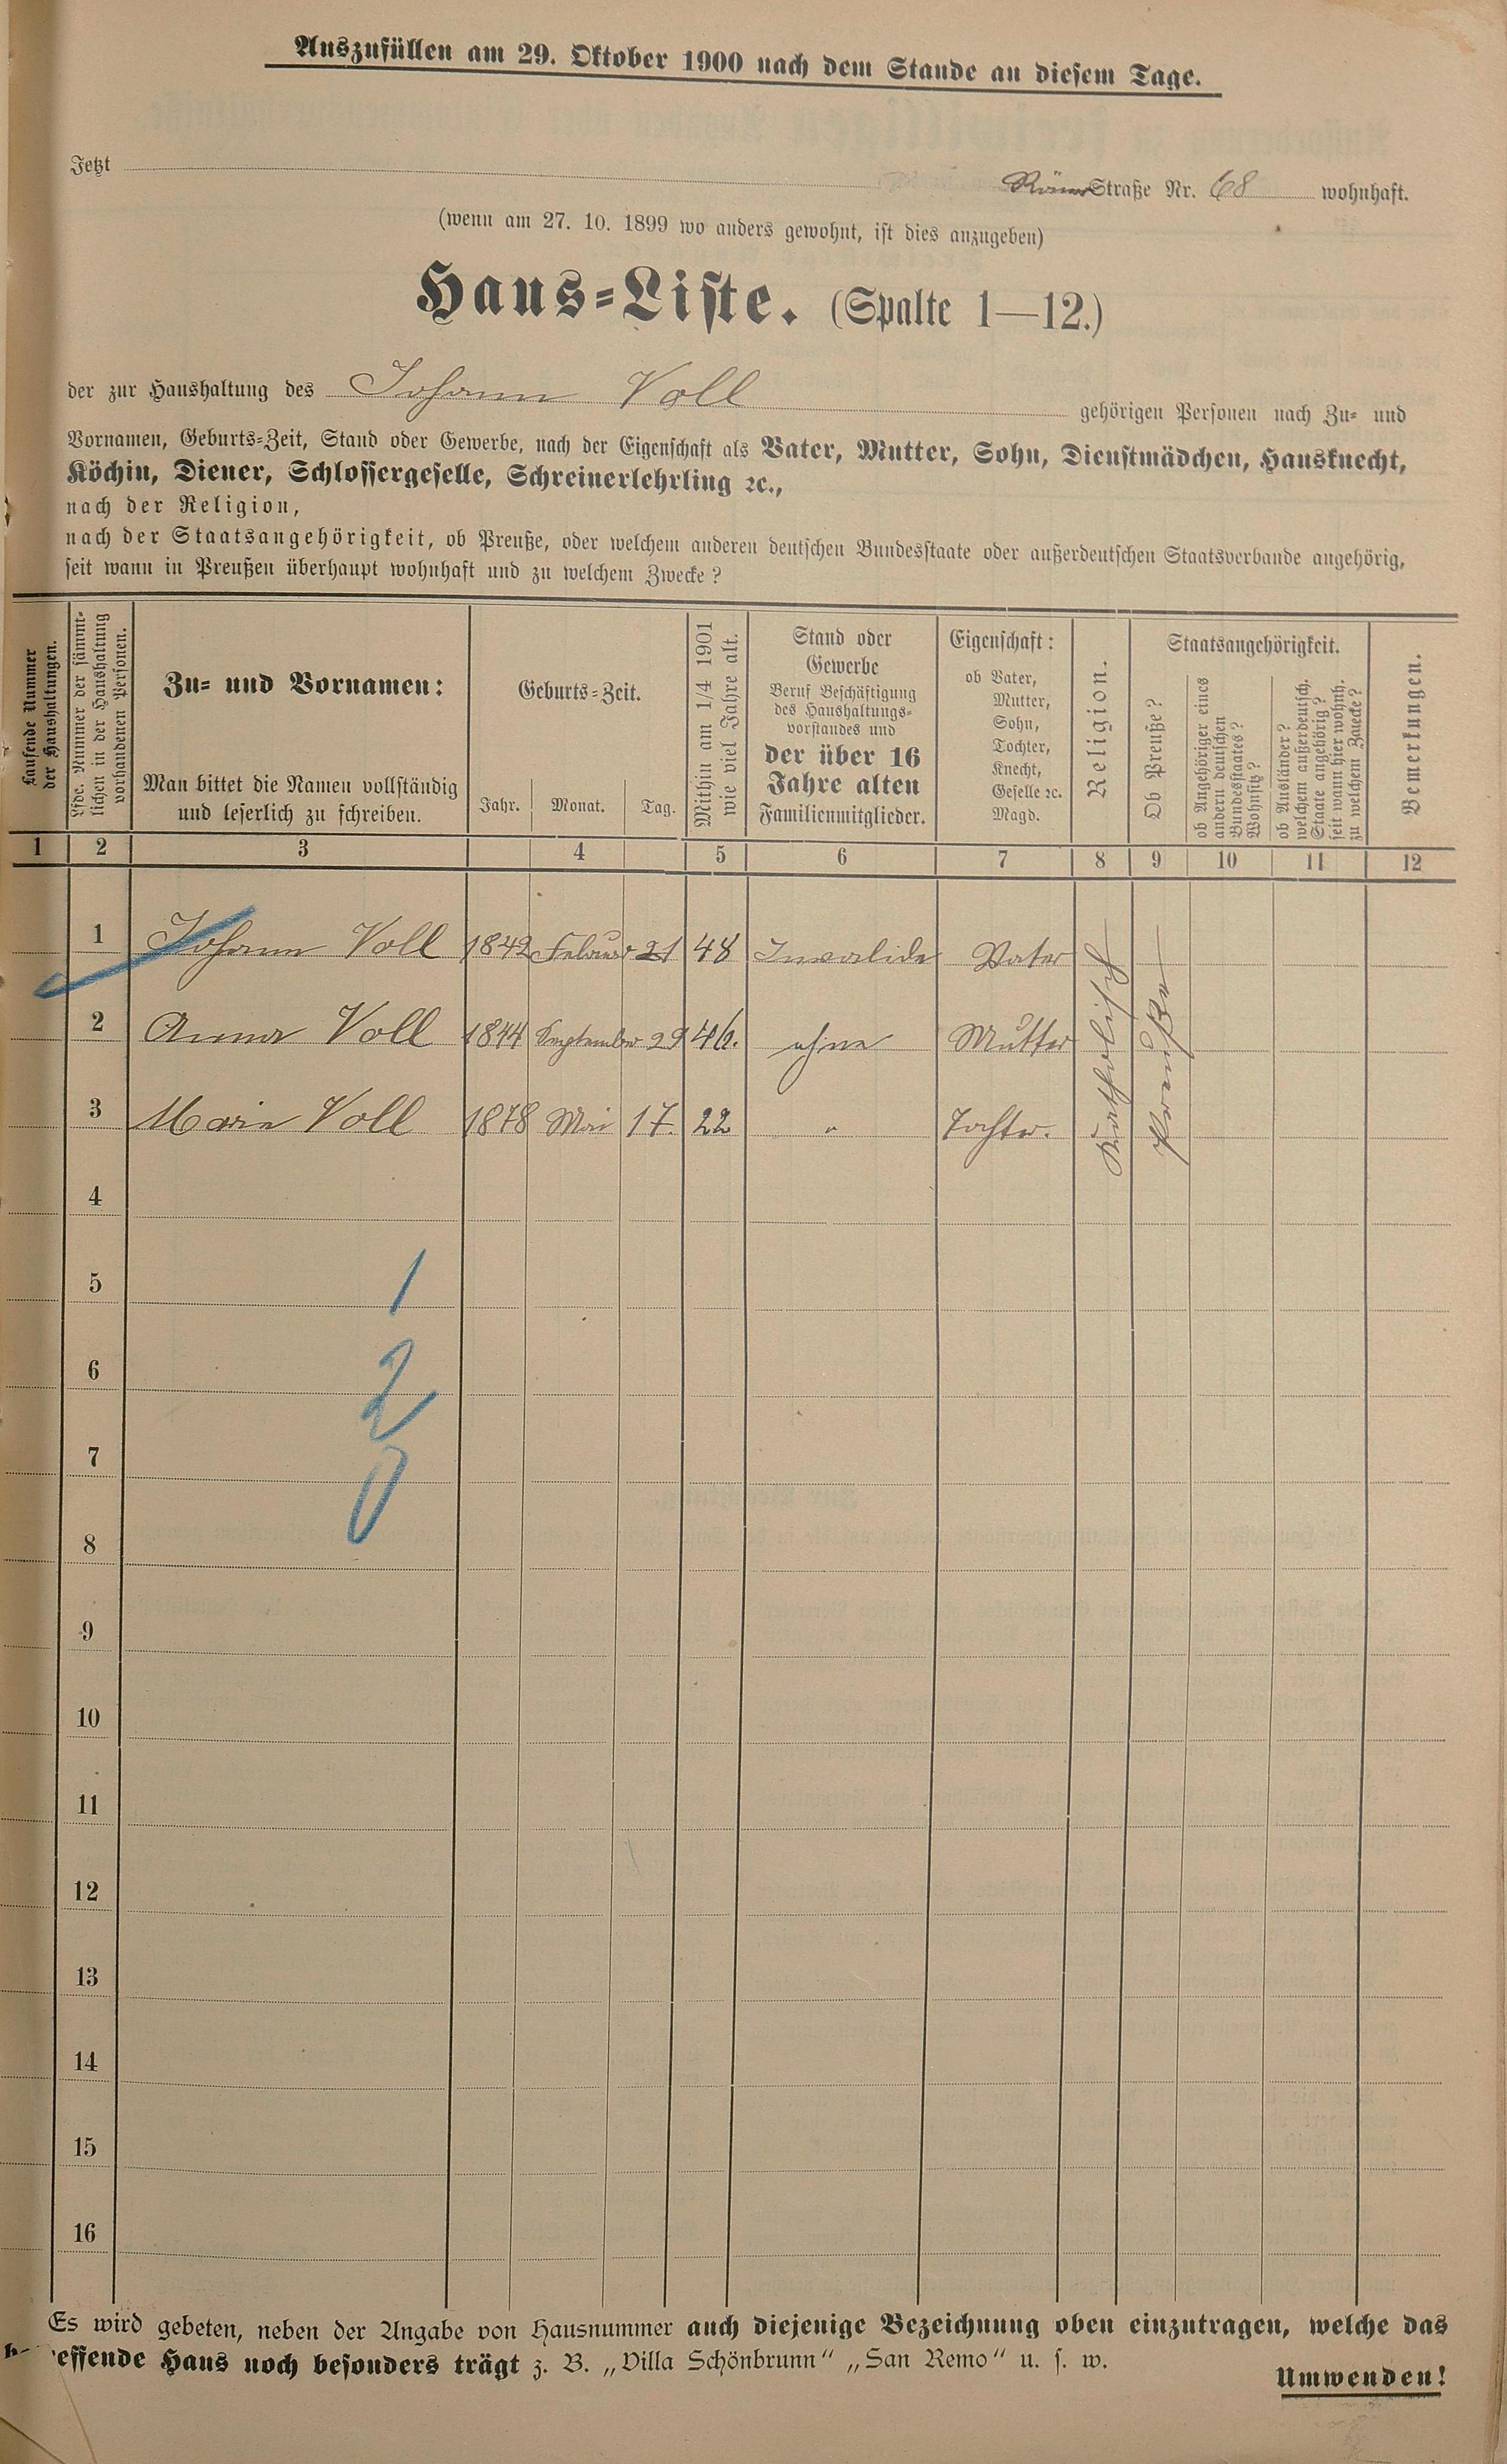 Auszufüllen am 29. Oktober 1900 nach dem Stande an diesem Tage.
Jetzt Römer Straße Nr. 68 wohnhaft.
(wenn am 27. 10. 1899 wo anders gewohnt, ist dies anzugeben)
Haus-Liste. (Spalte 1—12.)
der zur Haushaltung des Johann Voll gehörigen Personen nach Zu- und
Vornamen, Geburts-Zeit, Stand oder Gewerbe, nach der Eigenschaft als Vater, Mutter, Sohn, Dienstmädchen, Hausknecht,
Köchin, Diener, Schlossergeselle, Schreinerlehrling ꝛc.,
nach der Religion,
nach der Staatsangehörigkeit, ob Preuße, oder welchem anderen deutschen Bundesstaate oder außerdeutschen Staatsverbande angehörig,
seit wann in Preußen überhaupt wohnhaft und zu welchem Zwecke?
Laufende Nummer
der Haushaltungen.
Lfde. Nummer der sämmt-
lichen in der Haushaltung
vorhandenen Personen.
Zu- und Vornamen:
Man bittet die Namen vollständig
und leserlich zu schreiben.
Geburts-Zeit.
Jahr. Monat. Tag.
Mithin am 1/4 1901
wie viel Jahre alt.
Stand oder
Gewerbe
Beruf Beschäftigung
des Haushaltungs-
vorstandes und
der über 16
Jahre alten
Familienmitglieder.
Eigenschaft:
ob Vater,
Mutter,
Sohn,
Tochter,
Knecht,
Geselle ꝛc.
Magd.
Religion.
Staatsangehörigkeit.
Ob Preuße?
ob Angehöriger eines
andern deutschen
Bundesstaates?
Wohnsitz?
ob Ausländer?
welchem außerdeutsch.
Staate angehörig?
seit wann hier wohnh.
zu welchem Zwecke?
Bemerkungen.
1 2 3 4 5 6 7 8 9 10 11 12
1 Johann Voll 1842 Februar 21 48 Invalide Vater Katholisch Preuße
2 Anna Voll 1844 September 29 46. ohne Mutter
3 Maria Voll 1878 Mai 17. 22 " Tochter.
4
5 1
6 2
7 0
8
9
10
11
12
13
14
15
16
Es wird gebeten, neben der Angabe von Hausnummer auch diejenige Bezeichnung oben einzutragen, welche das
effende Haus noch besonders trägt z. B. „Villa Schönbrunn“ „San Remo“ u. s. w.
Umwenden!